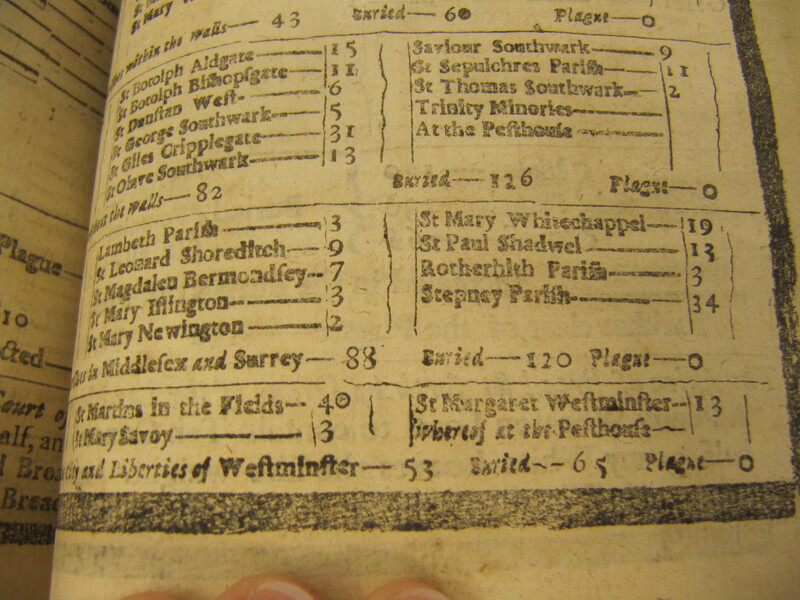 St Mary
within the walls — 43 Buried — 60 Plague — 0
St Botolph Aldgate — 15
St Botolph Bishopsgate — 11
St Dunstan West — 6
St George Southwark — 5
St Giles Cripplegate — 31
St Olave Southwark — 13
Saviour Southwark — 9
St Sepulchres Parish — 11
St Thomas Southwark — 2
Trinity Minories —
At the Pesthouse —
the walls — 82 Buried — 126 Plague — 0
Lambeth Parish — 3
St Leonard Shoreditch — 9
St Magdalen Bermondsey — 7
St Mary Islington — 3
St Mary Newington — 2
St Mary Whitechappel — 19
St Paul Shadwel — 13
Rotherhith Parish — 3
Stepney Parish — 34
in Middlesex and Surrey — 88 Buried — 120 Plague — 0
St Martins in the Fields — 40
St Mary Savoy — 3
St Margaret Westminster — 13
Whereof at the Pesthouse —
City and Liberties of Westminster — 53 Buried — 65 Plague — 0
Plague
10
cted
Court of
alf, an
Brea
Bread